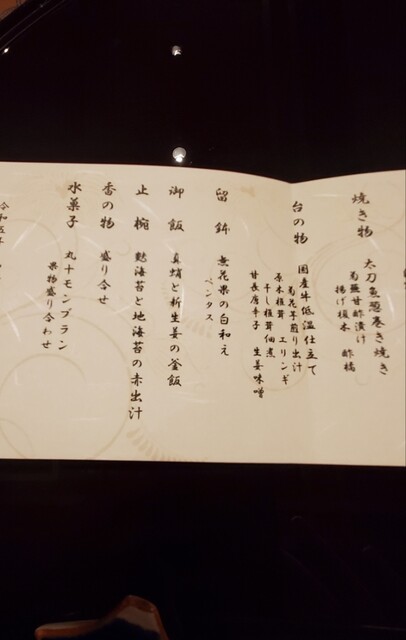 焼き物
太刀魚葱巻き焼き
菊蕪甘酢漬け
揚げ銀杏 酢橘
台の物
国産牛低温仕立て
菊花芋煎り出汁
原木椎茸 エリンギ
干し椎茸佃煮
甘長唐辛子 生姜味噌
留鉢
無花果の白和え
ペンタス
御飯
真蛸と新生姜の釜飯
止椀
麩海苔と地海苔の赤出汁
香の物
盛り合せ
水菓子
丸十モンブラン
果物盛り合わせ
令和五年